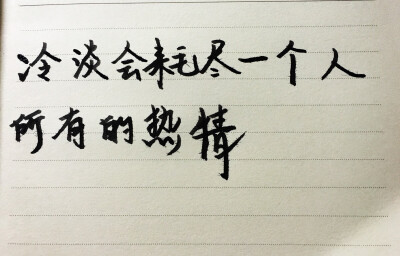 冷淡会耗尽一个人
所有的热情